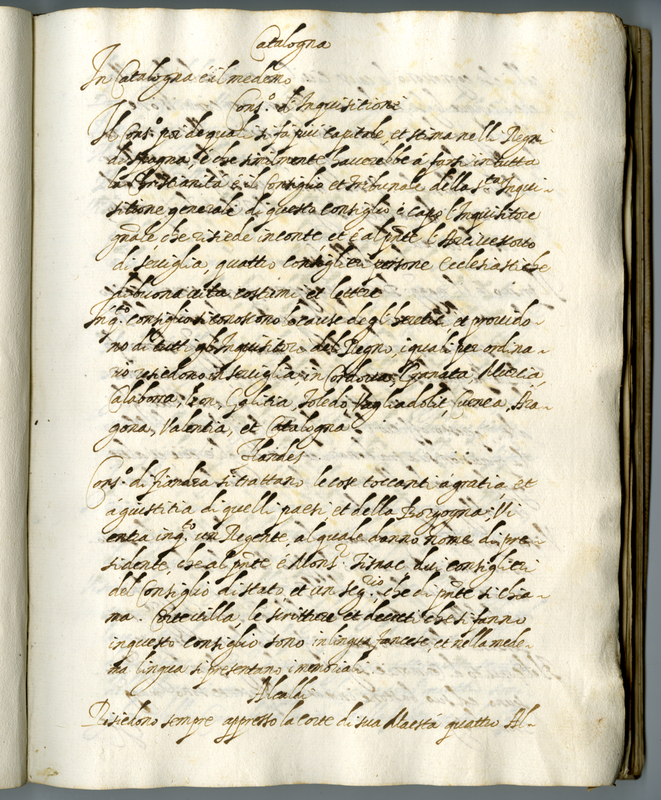 Catalogna
In Catalogna è il medemo
Cons.º d'Inquisitione
Il Cons.º poi de quali si fà più capitale, et stima nell Regni
di Spagna, e che similmente haverebbe à farsi in tutta
la Christianità è il Consiglio et Tribunale della S.ta Inqui-
sitione generale di questo consiglio è capo l'Inquisitore
gnãle che risiede in corte et è al pñte l'Arcivescovo
di seviglia, quattro consiglieri persone Ecclesiastiche
di buona vita costumi et lettere
In q.º consiglio si conoscono le cause degl'heretici et provido-
no di tutti gli Inquisitori del Regno, i quali per ordina-
rio resedono in seviglia, in Cordova, Granata Murcia
Calaorra, Leon, Galitia Toledo Vagliadolit, Cuenca, Ara-
gona, Valentia, et Catalogna
Flandes
Cons.º di fiandra si trattano le cose toccanti à gratia, et
à giustitia di quelli paesi, et della Borgogna, Vi
entra in q.º un Regente, al quale danno nome di pre-
sidente che al pñte è Mons.r Tisnac dui consiglieri
del Consiglio di stato et un seg.rio, che di pñte si chia-
ma. Cortevilla, le scritture et decreti che si fanno
in questo consiglio sono in lingua francese, et nella mede-
ma lingua si presentano i memoriali
Alcaldi
Risiedono sempre appresso la corte di sua Maestà quattro Al-